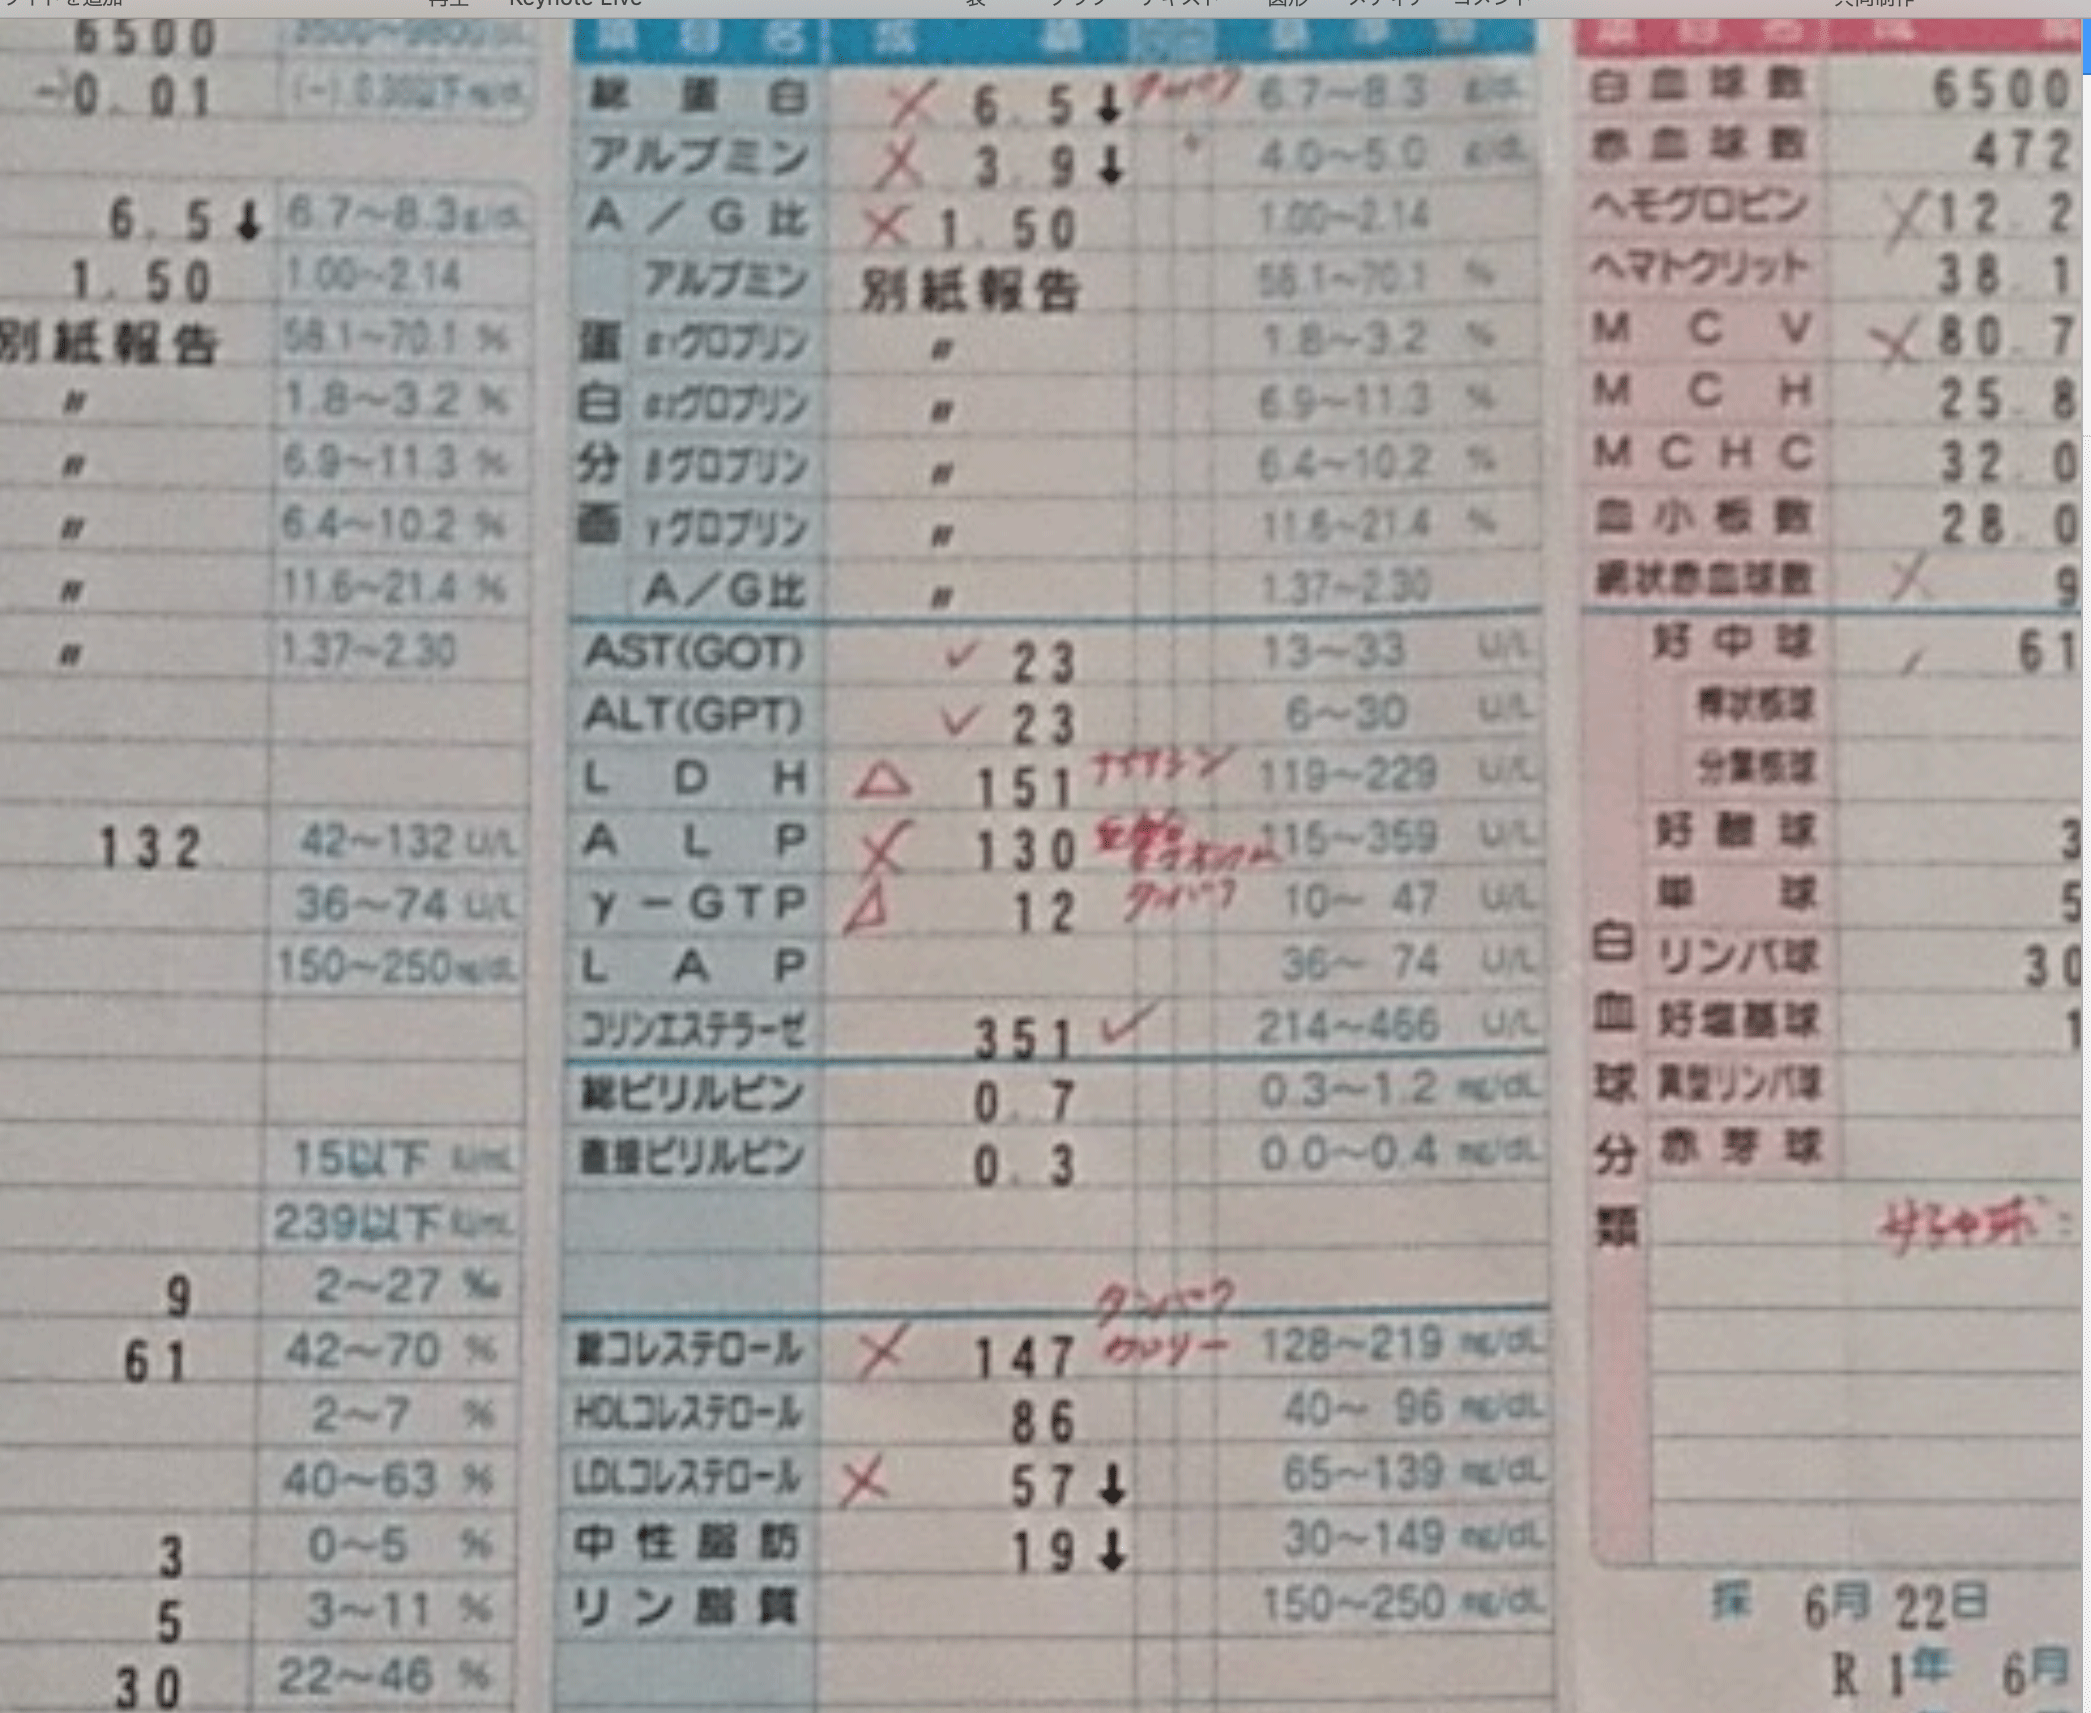 Keynote Live
6500
-0.01
6.5↓ 6.7～8.3g/dL
1.50 1.00～2.14
別紙報告 58.1～70.1 %
〃 1.8～3.2 %
〃 6.9～11.3 %
〃 6.4～10.2 %
〃 11.6～21.4 %
〃 1.37～2.30
132 42～132 U/L
36～74 U/L
150～250mg/dL
15以下 U/mL
239以下
9 2～27 ‰
61 42～70 %
2～7 %
40～63 %
3 0～5 %
5 3～11 %
30 22～46 %
項目名 成績 基準値
総蛋白 × 6.5↓ タンパク 6.7～8.3 g/dL
アルブミン × 3.9↓ 〃 4.0～5.0 g/dL
A／G比 × 1.50 1.00～2.14
蛋白分画
アルブミン 別紙報告 58.1～70.1 %
α1グロブリン 〃 1.8～3.2 %
α2グロブリン 〃 6.9～11.3 %
βグロブリン 〃 6.4～10.2 %
γグロブリン 〃 11.6～21.4 %
A／G比 〃 1.37～2.30
AST(GOT) ✓ 23 13～33 U/L
ALT(GPT) ✓ 23 6～30 U/L
LDH △ 151 ナイアシン 119～229 U/L
ALP × 130 115～359 U/L
γ－GTP △ 12 タンパク 10～ 47 U/L
LAP 36～ 74 U/L
コリンエステラーゼ 351 ✓ 214～466 U/L
総ビリルビン 0.7 0.3～1.2 mg/dL
直接ビリルビン 0.3 0.0～0.4 mg/dL
タンパク
総コレステロール × 147 カロリー 128～219 mg/dL
HDLコレステロール 86 40～ 96 mg/dL
LDLコレステロール × 57↓ 65～139 mg/dL
中性脂肪 19↓ 30～149 mg/dL
リン脂質 150～250 mg/dL
項目名 成績
白血球数 6500
赤血球数 472
ヘモグロビン × 12.2
ヘマトクリット 38.1
MCV × 80.7
MCH 25.8
MCHC 32.0
血小板数 28.0
網状赤血球数 × 9
白血球分類
好中球 61
桿状核球
分葉核球
好酸球 3
単球 5
リンパ球 30
好塩基球 1
異型リンパ球
赤芽球
採 6月 22日
R 1年 6月